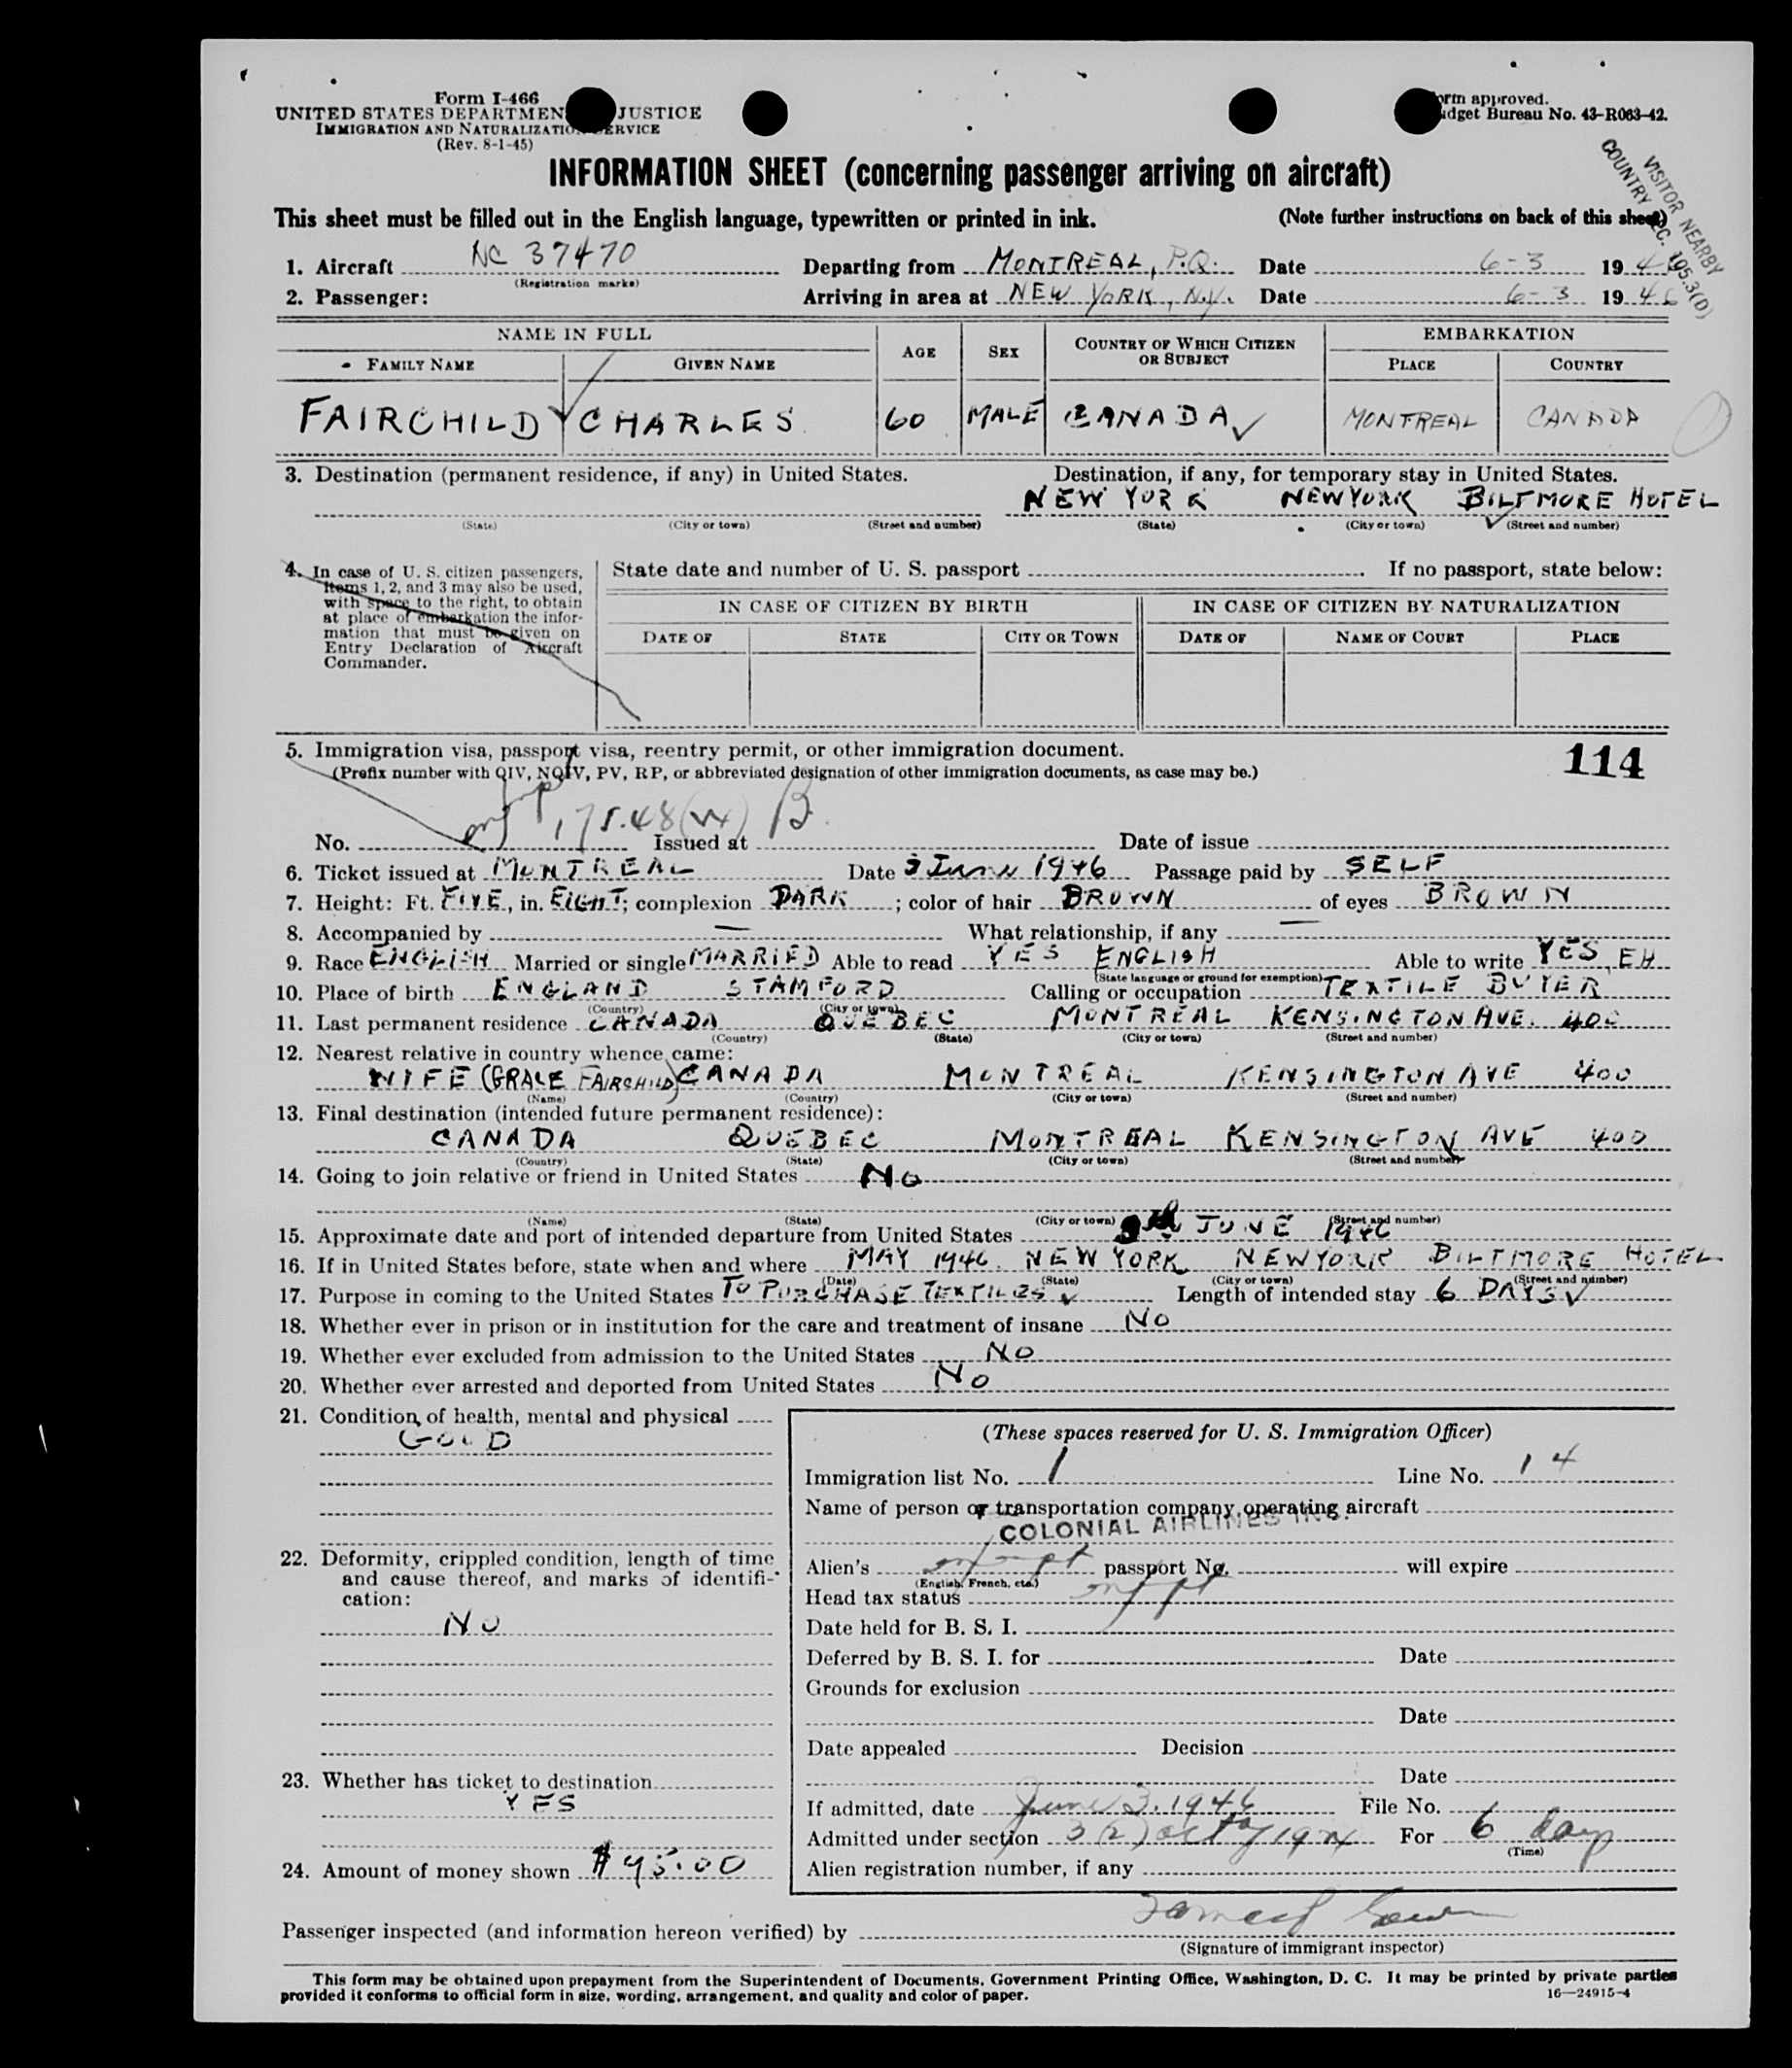 Form I-466
UNITED STATES DEPARTMENT JUSTICE
IMMIGRATION AND NATURALIZATION SERVICE
(Rev. 8-1-45)
Form approved.
Budget Bureau No. 43-R063-42.
VISITOR NEARBY
COUNTRY SEC. 105.3(D)
INFORMATION SHEET (concerning passenger arriving on aircraft)
This sheet must be filled out in the English language, typewritten or printed in ink. (Note further instructions on back of this sheet)
1. Aircraft NC 37470 Departing from MONTREAL, P.Q. Date 6-3 1946
(Registration marks)
2. Passenger: Arriving in area at NEW YORK, N.Y. Date 6-3 1946
NAME IN FULL AGE SEX COUNTRY OF WHICH CITIZEN OR SUBJECT EMBARKATION
FAMILY NAME GIVEN NAME PLACE COUNTRY
FAIRCHILD CHARLES 60 MALE CANADA MONTREAL CANADA
3. Destination (permanent residence, if any) in United States. Destination, if any, for temporary stay in United States.
NEW YORK NEW YORK BILTMORE HOTEL
(State) (City or town) (Street and number) (State) (City or town) (Street and number)
4. In case of U. S. citizen passengers, items 1, 2, and 3 may also be used, with space to the right, to obtain at place of embarkation the information that must be given on Entry Declaration of Aircraft Commander.
State date and number of U. S. passport If no passport, state below:
IN CASE OF CITIZEN BY BIRTH IN CASE OF CITIZEN BY NATURALIZATION
DATE OF STATE CITY OR TOWN DATE OF NAME OF COURT PLACE
5. Immigration visa, passport visa, reentry permit, or other immigration document. 114
(Prefix number with QIV, NQIV, PV, RP, or abbreviated designation of other immigration documents, as case may be.)
No. 175.48 B Issued at Date of issue
6. Ticket issued at MONTREAL Date 3 June 1946 Passage paid by SELF
7. Height: Ft. FIVE, in. EIGHT; complexion DARK; color of hair BROWN of eyes BROWN
8. Accompanied by — What relationship, if any —
9. Race ENGLISH Married or single MARRIED Able to read YES ENGLISH Able to write YES, EH
(State language or ground for exemption)
10. Place of birth ENGLAND STAMFORD Calling or occupation TEXTILE BUYER
(Country) (City or town)
11. Last permanent residence CANADA QUEBEC MONTREAL KENSINGTON AVE. 400
(Country) (State) (City or town) (Street and number)
12. Nearest relative in country whence came:
WIFE (GRACE FAIRCHILD) CANADA MONTREAL KENSINGTON AVE 400
(Name) (Country) (City or town) (Street and number)
13. Final destination (intended future permanent residence):
CANADA QUEBEC MONTREAL KENSINGTON AVE 400
(Country) (State) (City or town) (Street and number)
14. Going to join relative or friend in United States NO
(Name) (State) (City or town) (Street and number)
15. Approximate date and port of intended departure from United States JUNE 1946
16. If in United States before, state when and where MAY 1946. NEW YORK NEW YORK BILTMORE HOTEL
(Date) (State) (City or town) (Street and number)
17. Purpose in coming to the United States TO PURCHASE TEXTILES Length of intended stay 6 DAYS
18. Whether ever in prison or in institution for the care and treatment of insane NO
19. Whether ever excluded from admission to the United States NO
20. Whether ever arrested and deported from United States NO
21. Condition of health, mental and physical
GOOD
22. Deformity, crippled condition, length of time
and cause thereof, and marks of identifi-
cation:
NO
23. Whether has ticket to destination
YES
24. Amount of money shown $95.00
(These spaces reserved for U. S. Immigration Officer)
Immigration list No. 1 Line No. 14
Name of person or transportation company operating aircraft
COLONIAL AIRLINES INC.
Alien's exempt passport No. will expire
(English, French, etc.)
Head tax status
Date held for B. S. I.
Deferred by B. S. I. for Date
Grounds for exclusion
Date
Date appealed Decision
Date
If admitted, date June 3, 1946 File No.
Admitted under section 3(2) act of 1924 For 6 days
(Time)
Alien registration number, if any
Passenger inspected (and information hereon verified) by
(Signature of immigrant inspector)
This form may be obtained upon prepayment from the Superintendent of Documents, Government Printing Office, Washington, D. C. It may be printed by private parties
provided it conforms to official form in size, wording, arrangement, and quality and color of paper.
16—24915-4